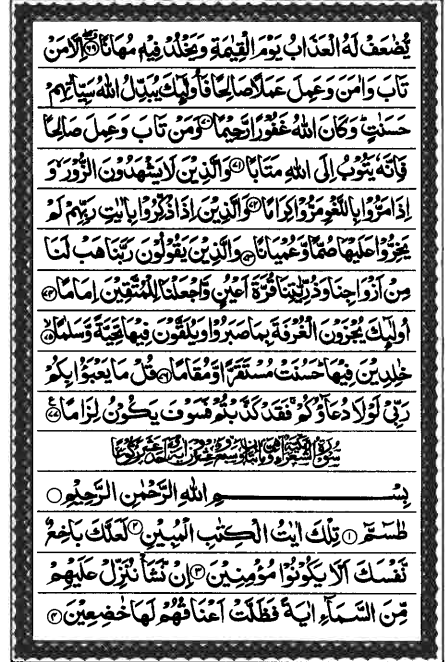 يُّضٰعَفْ لَهُ الْعَذَابُ يَوْمَ الْقِيٰمَةِ وَيَخْلُدْ فِيْهٖ مُهَانًا ﴿٦٩﴾ اِلَّا مَنْ
تَابَ وَاٰمَنَ وَعَمِلَ عَمَلًا صَالِحًا فَاُولٰٓئِكَ يُبَدِّلُ اللّٰهُ سَيِّاٰتِهِمْ
حَسَنٰتٍ ؕ وَكَانَ اللّٰهُ غَفُوْرًا رَّحِيْمًا ﴿٧٠﴾ وَمَنْ تَابَ وَعَمِلَ صَالِحًا
فَاِنَّهٗ يَتُوْبُ اِلَى اللّٰهِ مَتَابًا ﴿٧١﴾ وَالَّذِيْنَ لَا يَشْهَدُوْنَ الزُّوْرَ ۙ وَ
اِذَا مَرُّوْا بِاللَّغْوِ مَرُّوْا كِرَامًا ﴿٧٢﴾ وَالَّذِيْنَ اِذَا ذُكِّرُوْا بِاٰيٰتِ رَبِّهِمْ لَمْ
يَخِرُّوْا عَلَيْهَا صُمًّا وَّعُمْيَانًا ﴿٧٣﴾ وَالَّذِيْنَ يَقُوْلُوْنَ رَبَّنَا هَبْ لَنَا
مِنْ اَزْوَاجِنَا وَذُرِّيّٰتِنَا قُرَّةَ اَعْيُنٍ وَّاجْعَلْنَا لِلْمُتَّقِيْنَ اِمَامًا ﴿٧٤﴾
اُولٰٓئِكَ يُجْزَوْنَ الْغُرْفَةَ بِمَا صَبَرُوْا وَيُلَقَّوْنَ فِيْهَا تَحِيَّةً وَّسَلٰمًا ﴿٧٥﴾
خٰلِدِيْنَ فِيْهَا ؕ حَسُنَتْ مُسْتَقَرًّا وَّمُقَامًا ﴿٧٦﴾ قُلْ مَا يَعْبَؤُا بِكُمْ
رَبِّيْ لَوْلَا دُعَآؤُكُمْ ۚ فَقَدْ كَذَّبْتُمْ فَسَوْفَ يَكُوْنُ لِزَامًا ﴿٧٧﴾
بِسْمِ اللّٰهِ الرَّحْمٰنِ الرَّحِيْمِ
طٰسٓمّٓ ﴿١﴾ تِلْكَ اٰيٰتُ الْكِتٰبِ الْمُبِيْنِ ﴿٢﴾ لَعَلَّكَ بَاخِعٌ
نَّفْسَكَ اَلَّا يَكُوْنُوْا مُؤْمِنِيْنَ ﴿٣﴾ اِنْ نَّشَاْ نُنَزِّلْ عَلَيْهِمْ
مِّنَ السَّمَآءِ اٰيَةً فَظَلَّتْ اَعْنَاقُهُمْ لَهَا خٰضِعِيْنَ ﴿٤﴾